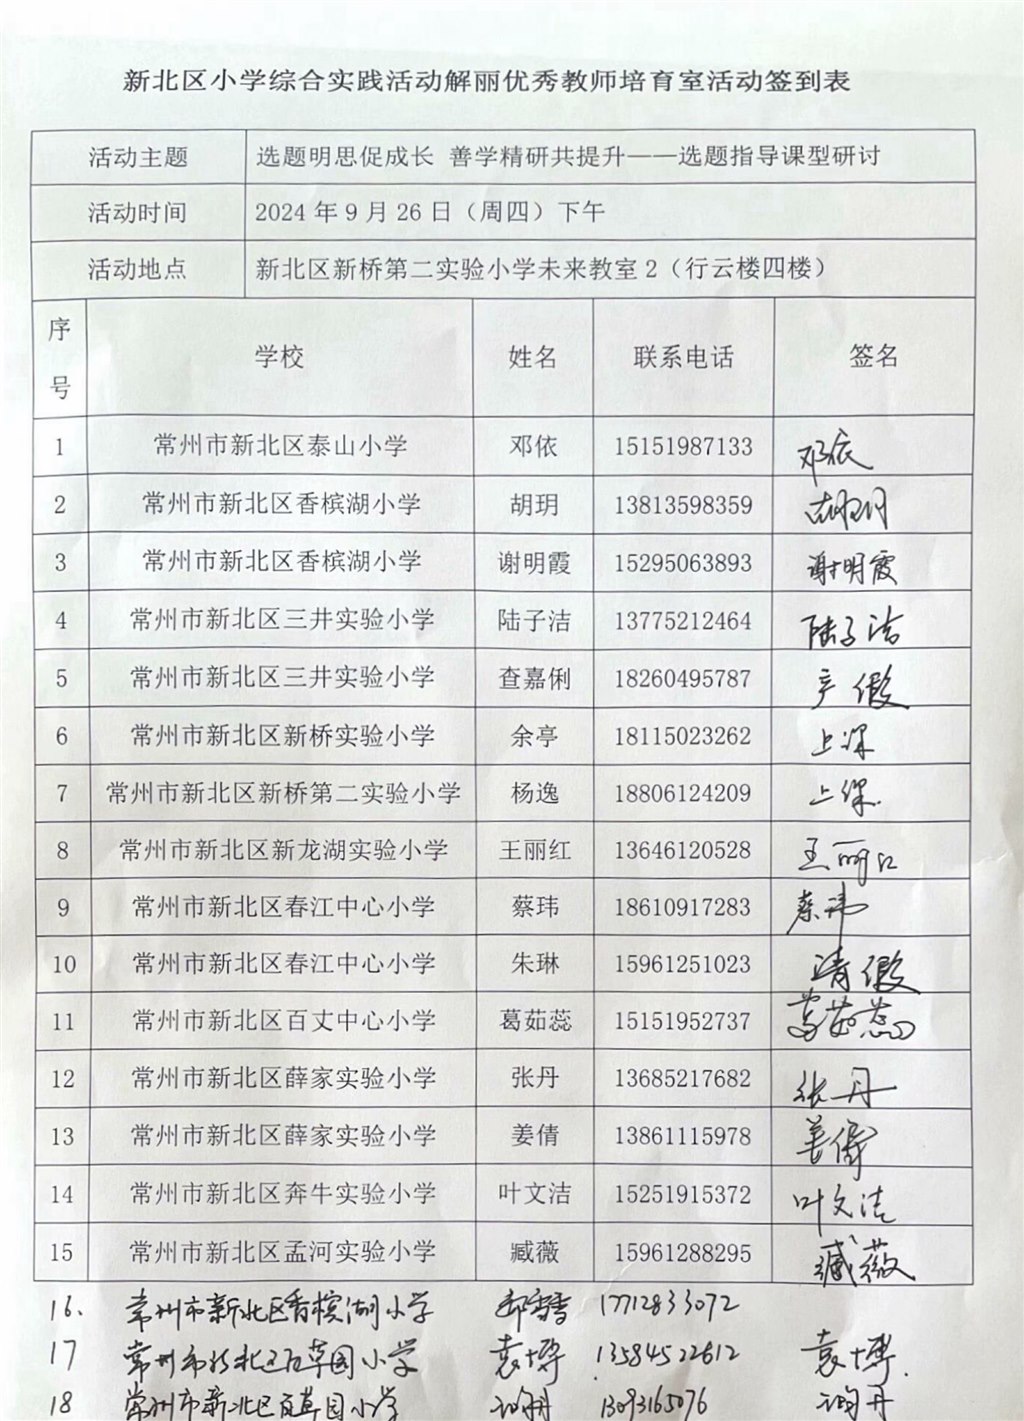 新北区小学综合实践活动解丽优秀教师培育室活动签到表
活动主题 选题明思促成长 善学精研共提升——选题指导课型研讨
活动时间 2024 年 9 月 26 日（周四）下午
活动地点 新北区新桥第二实验小学未来教室 2（行云楼四楼）
序号 学校 姓名 联系电话 签名
1 常州市新北区泰山小学 邓依 15151987133 邓依
2 常州市新北区香槟湖小学 胡玥 13813598359 胡玥
3 常州市新北区香槟湖小学 谢明霞 15295063893 谢明霞
4 常州市新北区三井实验小学 陆子洁 13775212464 陆子洁
5 常州市新北区三井实验小学 查嘉俐 18260495787 产假
6 常州市新北区新桥实验小学 余亭 18115023262 上课
7 常州市新北区新桥第二实验小学 杨逸 18806124209 上课.
8 常州市新北区新龙湖实验小学 王丽红 13646120528 王丽红
9 常州市新北区春江中心小学 蔡玮 18610917283 蔡玮
10 常州市新北区春江中心小学 朱琳 15961251023 请假
11 常州市新北区百丈中心小学 葛茹蕊 15151952737 葛茹蕊
12 常州市新北区薛家实验小学 张丹 13685217682 张丹
13 常州市新北区薛家实验小学 姜倩 13861115978 姜倩
14 常州市新北区奔牛实验小学 叶文洁 15251915372 叶文洁
15 常州市新北区孟河实验小学 臧薇 15961288295 臧薇
16. 常州市新北区香槟湖小学 17712833072
17 常州市新北区百草园小学 13584522612
18 常州市新北区百草园小学 13093165076